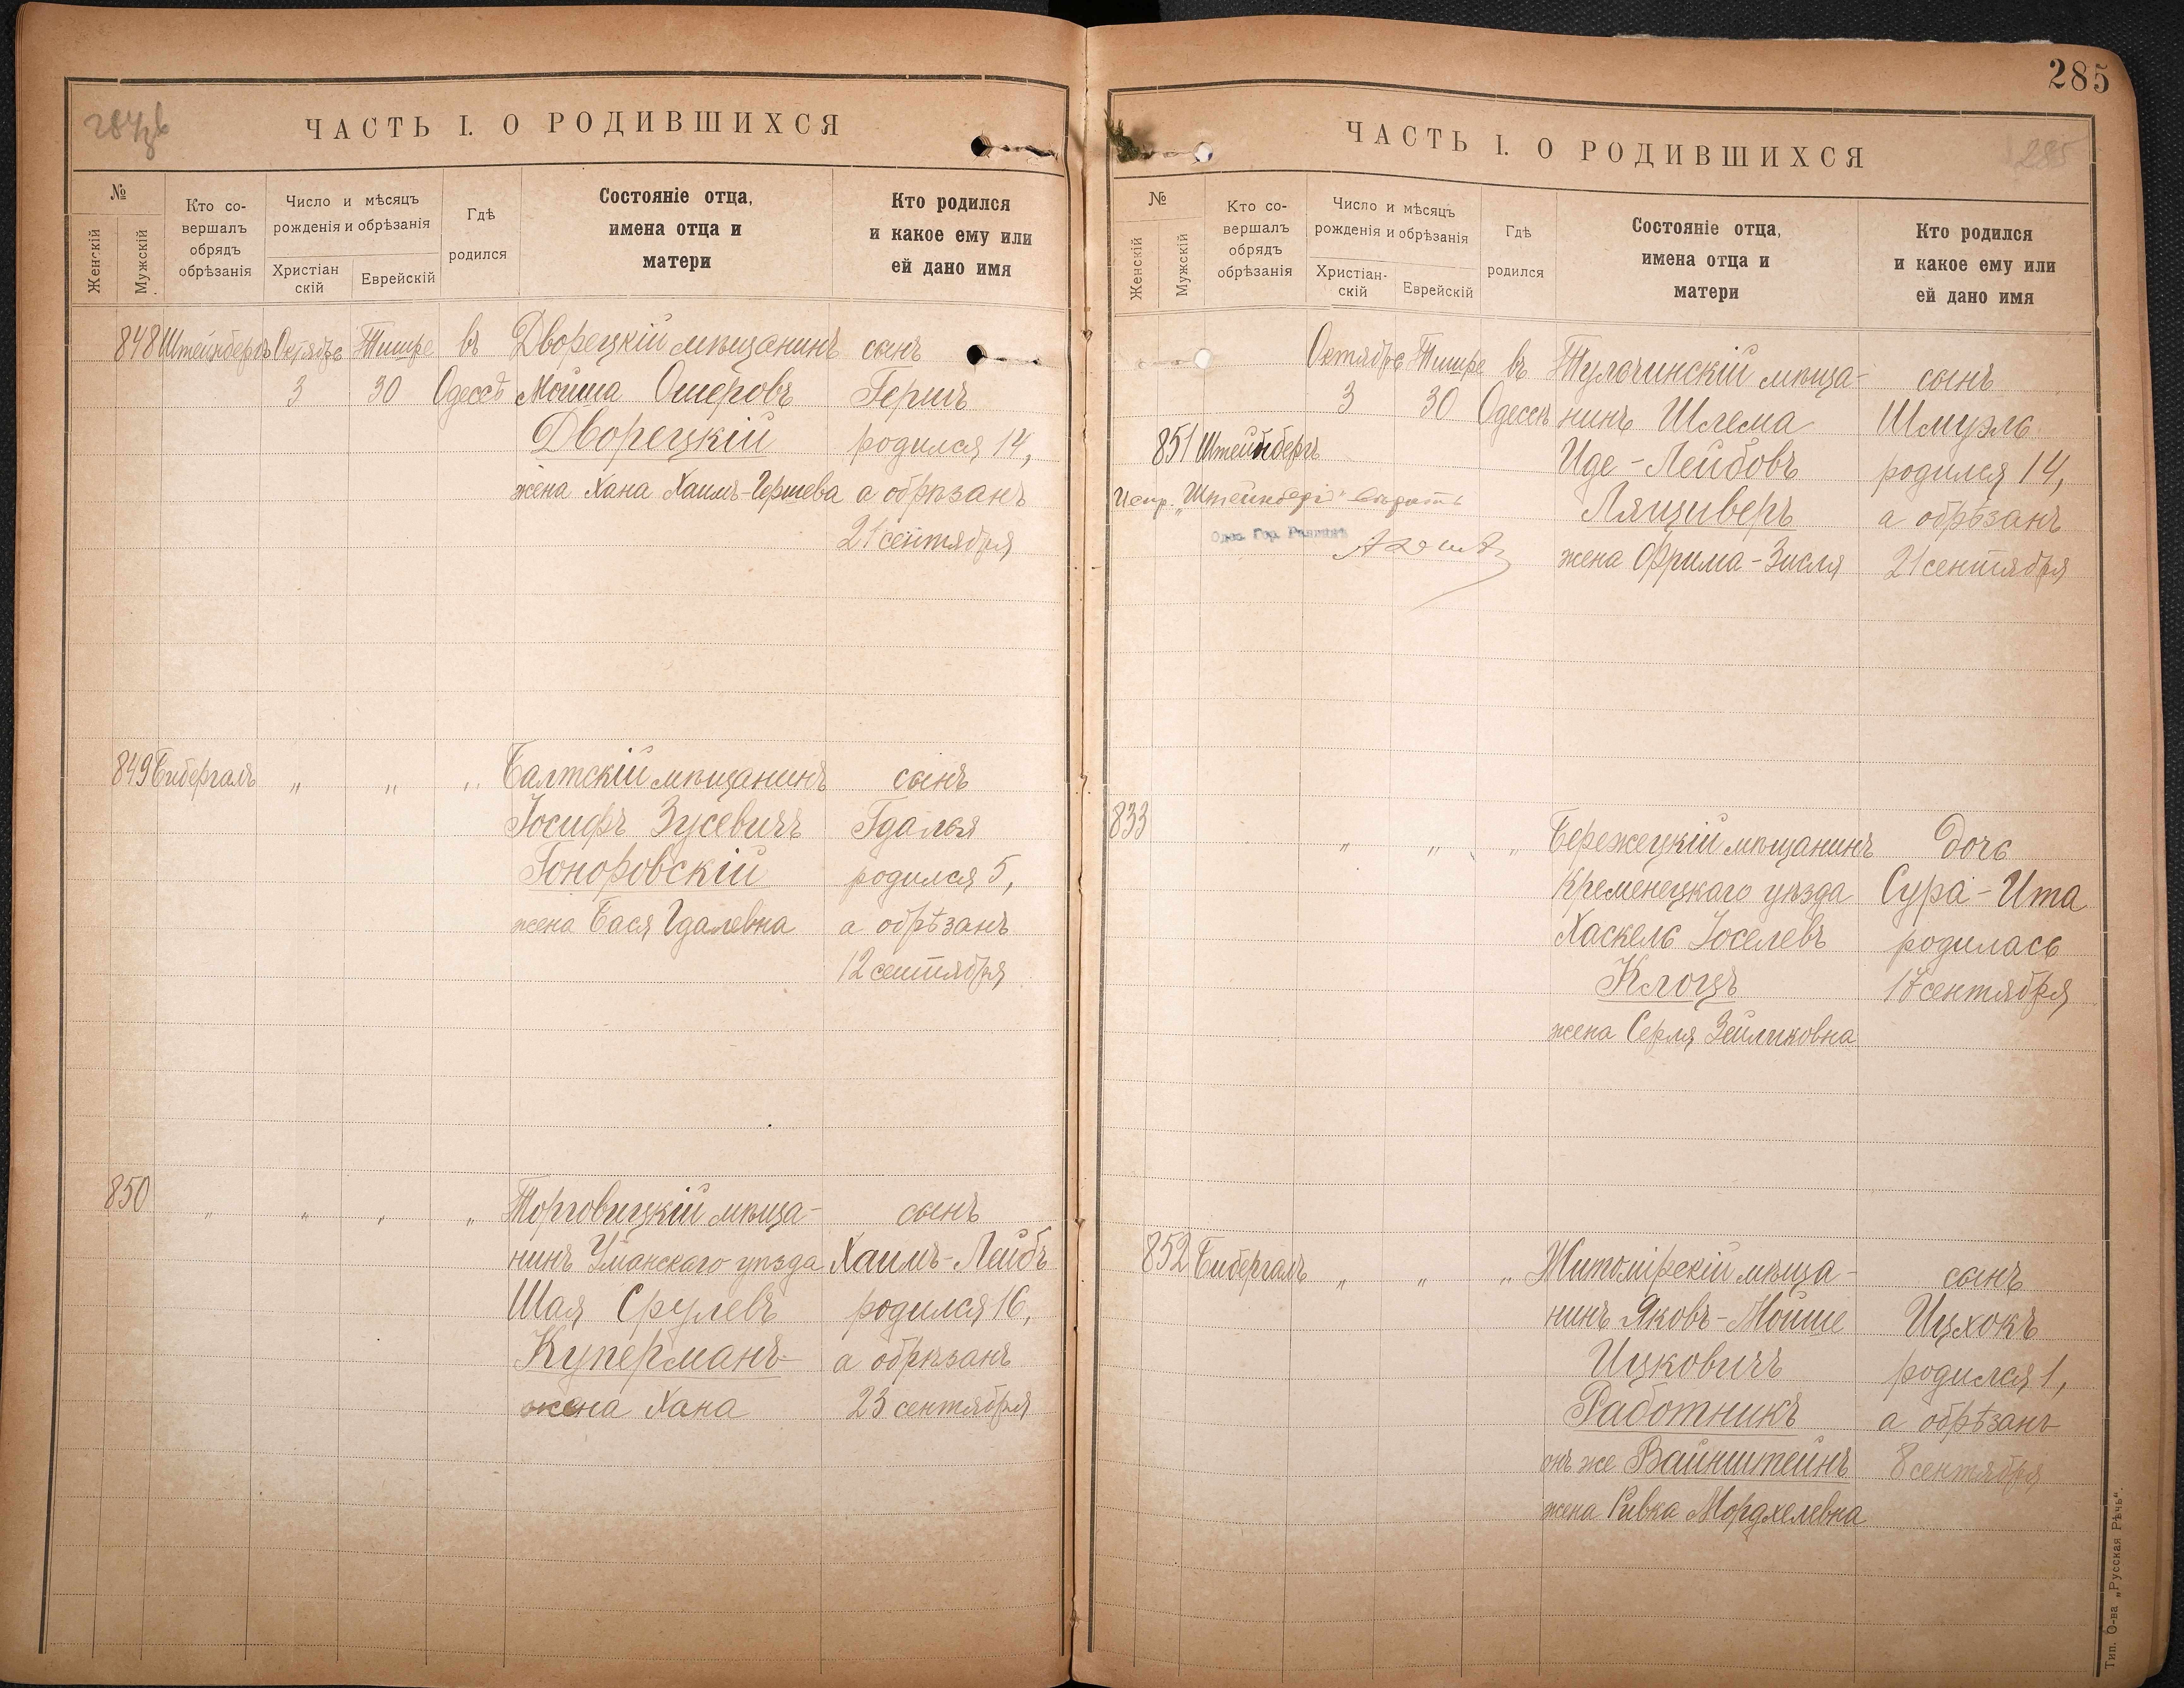 284 об
ЧАСТЬ I. О РОДИВШИХСЯ
№
Женскій
Мужскій
Кто со-
вершалъ
обрядъ
обрѣзанія
Число и мѣсяцъ
рожденія и обрѣзанія
Христіан
скій
Еврейскій
Гдѣ
родился
Состояніе отца,
имена отца и
матери
Кто родился
и какое ему или
ей дано имя
848 Штейнбергъ Октябрь Тишре въ Дворецкій мѣщанинъ сынъ
3 30 Одессѣ Мойша Ошеровъ Гершъ
Дворецкій родился 14,
жена Хана Хаимъ-Гершева а обрѣзанъ
21 сентября
849 Бибергалъ " " " Балтскій мѣщанинъ сынъ
Іосифъ Зусевичъ Гдалья
Гоноровскій родился 5,
жена Бася Гдалевна а обрѣзанъ
12 сентября
850 " " " " Торговицкій мѣща-
сынъ
нинъ Уманскаго уѣзда Хаимъ-Лейбъ
Шая Срулевъ родился 16,
Куперманъ а обрѣзанъ
жена Хана 23 сентября
285
ЧАСТЬ I. О РОДИВШИХСЯ
285
№
Женскій
Мужскій
Кто со-
вершалъ
обрядъ
обрѣзанія
Число и мѣсяцъ
рожденія и обрѣзанія
Христіан-
скій
Еврейскій
Гдѣ
родился
Состояніе отца,
имена отца и
матери
Кто родился
и какое ему или
ей дано имя
Октябрь Тишре въ Тульчинскій мѣща- сынъ
3 30 Одессѣ нинъ Шлема Шмуэль
851 Штейнбергъ Иде-Лейбовъ родился 14,
Испр. "Штейнбергъ" вѣрить
Лящиверъ а обрѣзанъ
Одес. Гор. Раввинъ
жена Фрима-Зисля 21 сентября
833 " " " Бережецкій мѣщанинъ дочь
Кременецкаго уѣзда Сура-Ита
Хаскель Іоселевъ родилась
Клоцъ 17 сентября
жена Серля Зейликовна
852 Бибергалъ " " " Житомірскій мѣща- сынъ
нинъ Яковъ-Мойше Ицхокъ
Ицковичъ родился 1,
Работникъ а обрѣзанъ
онъ же Вайнштейнъ 8 сентября
жена Ривка Мордхелевна
Тип. О-ва „Русская Рѣчь".